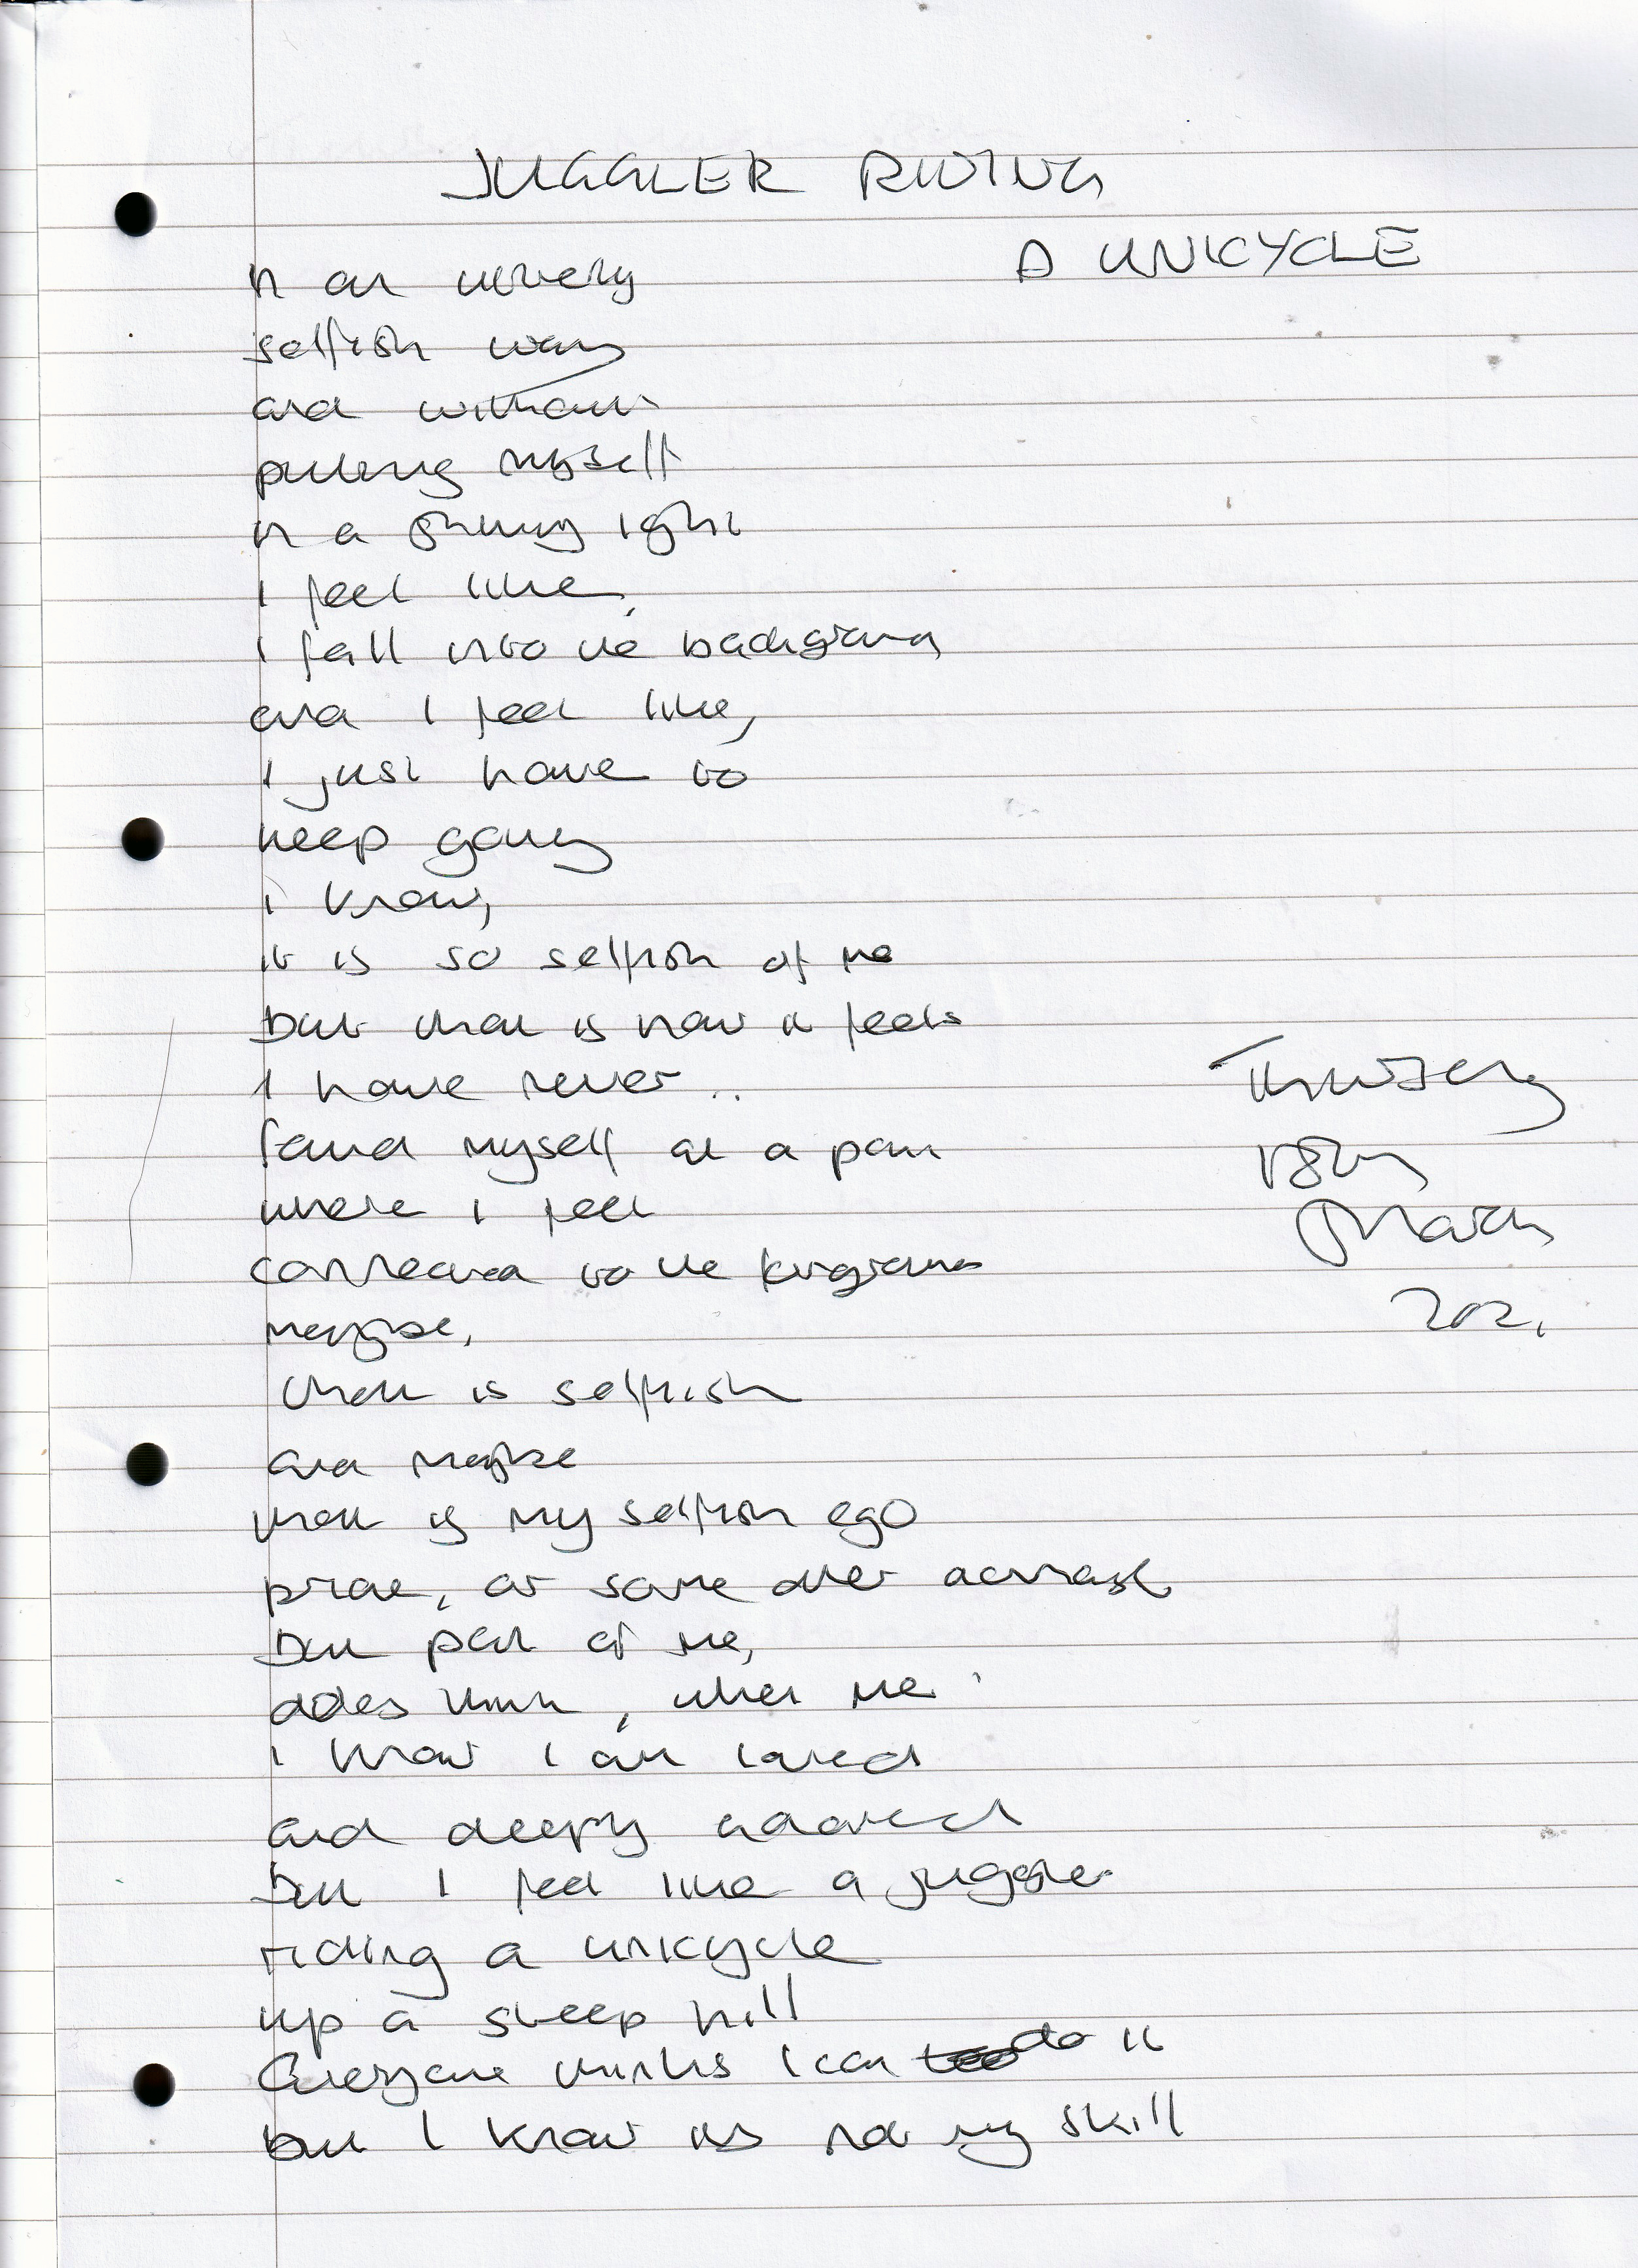 JUGGLER RIDING
A UNICYCLE
in an utterly
selfish way
and without
putting myself
in a shining light
I feel like,
I fall into the background
and I feel like,
I just have to
keep going
I know,
it is so selfish of me
But that is how it feels
I have never..
found myself at a point
where I feel
connected to the foreground
maybe,
that is selfish
and maybe
that is my selfish ego
pride, or some other
But part of me,
does think, what me
I know I am loved
and deeply adored
But I feel like a juggler
riding a unicycle
up a steep hill
Everyone thinks I can do it
but I know its not my skill
Thursday
18th
March